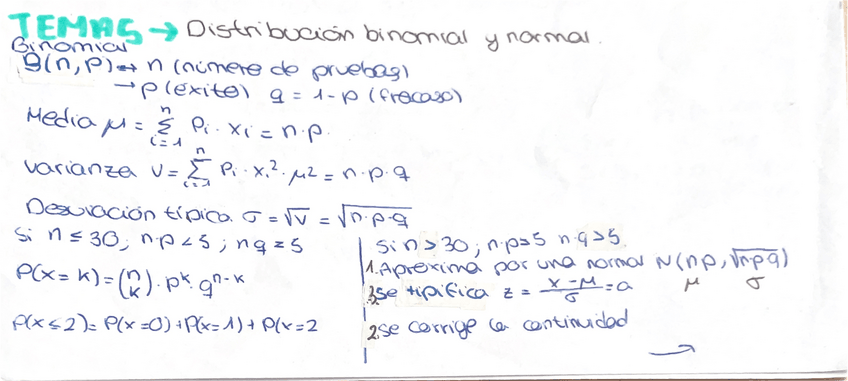 TEMA5 → Distribución binomial y normal.
Binomial
B(n, p) → n (número de pruebas)
→ p (éxito) q = 1 - p (fracaso)
Media μ = Σ i=1 n Pi · xi = n · p.
Varianza V = Σ i=1 n Pi · xi² · μ² = n · p · q
Desviación típica. σ = √V = √n · p · q
Si n ≤ 30; n·p < 5; nq = 5
P(x = k) = (n k) · p^k · q^n-k
P(x ≤ 2) = P(x = 0) + P(x = 1) + P(x = 2
Si n > 30; n·p > 5 n·q > 5.
1. Aproxima por una normal N(np, √n·p·q)
μ σ
3. Se tipifica z = x - μ / σ = a
2. Se corrige la continuidad
→